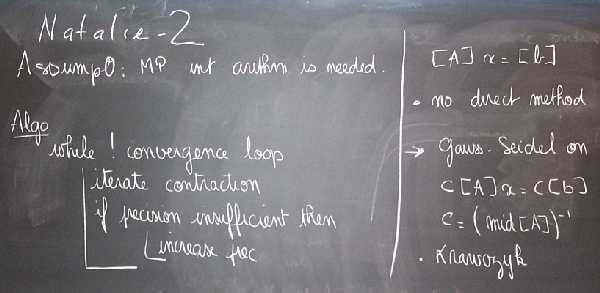 Natalie-2
Assump0: MP int arithm is needed.
Algo
while ! convergence loop
iterate contraction
if precision insufficient then
increase prec
[A] x = [b]
• no direct method
→ Gauss-Seidel on
C[A]x = C[b]
C = (mid[A])⁻¹
• Krawczyk